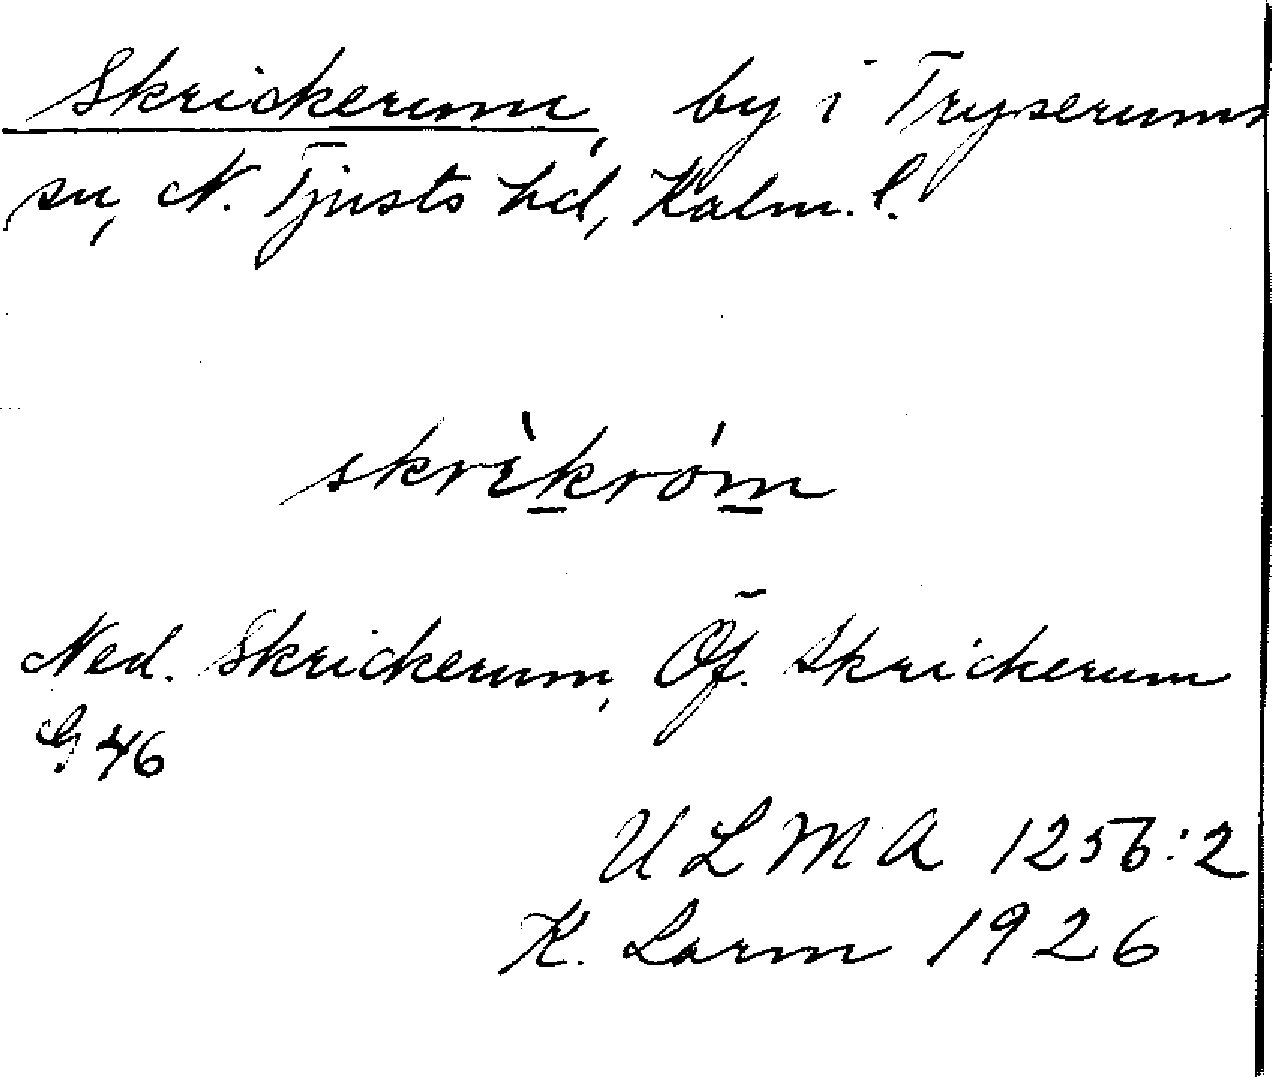 Skrickerum, by i Tryserums
sn, N. Tjusts hd, Kalm. l.
skrìkróm
Ned. Skrickerum, Öf. Skrickerum
G 46
ULMA 1256:2
K. Lorm 1926